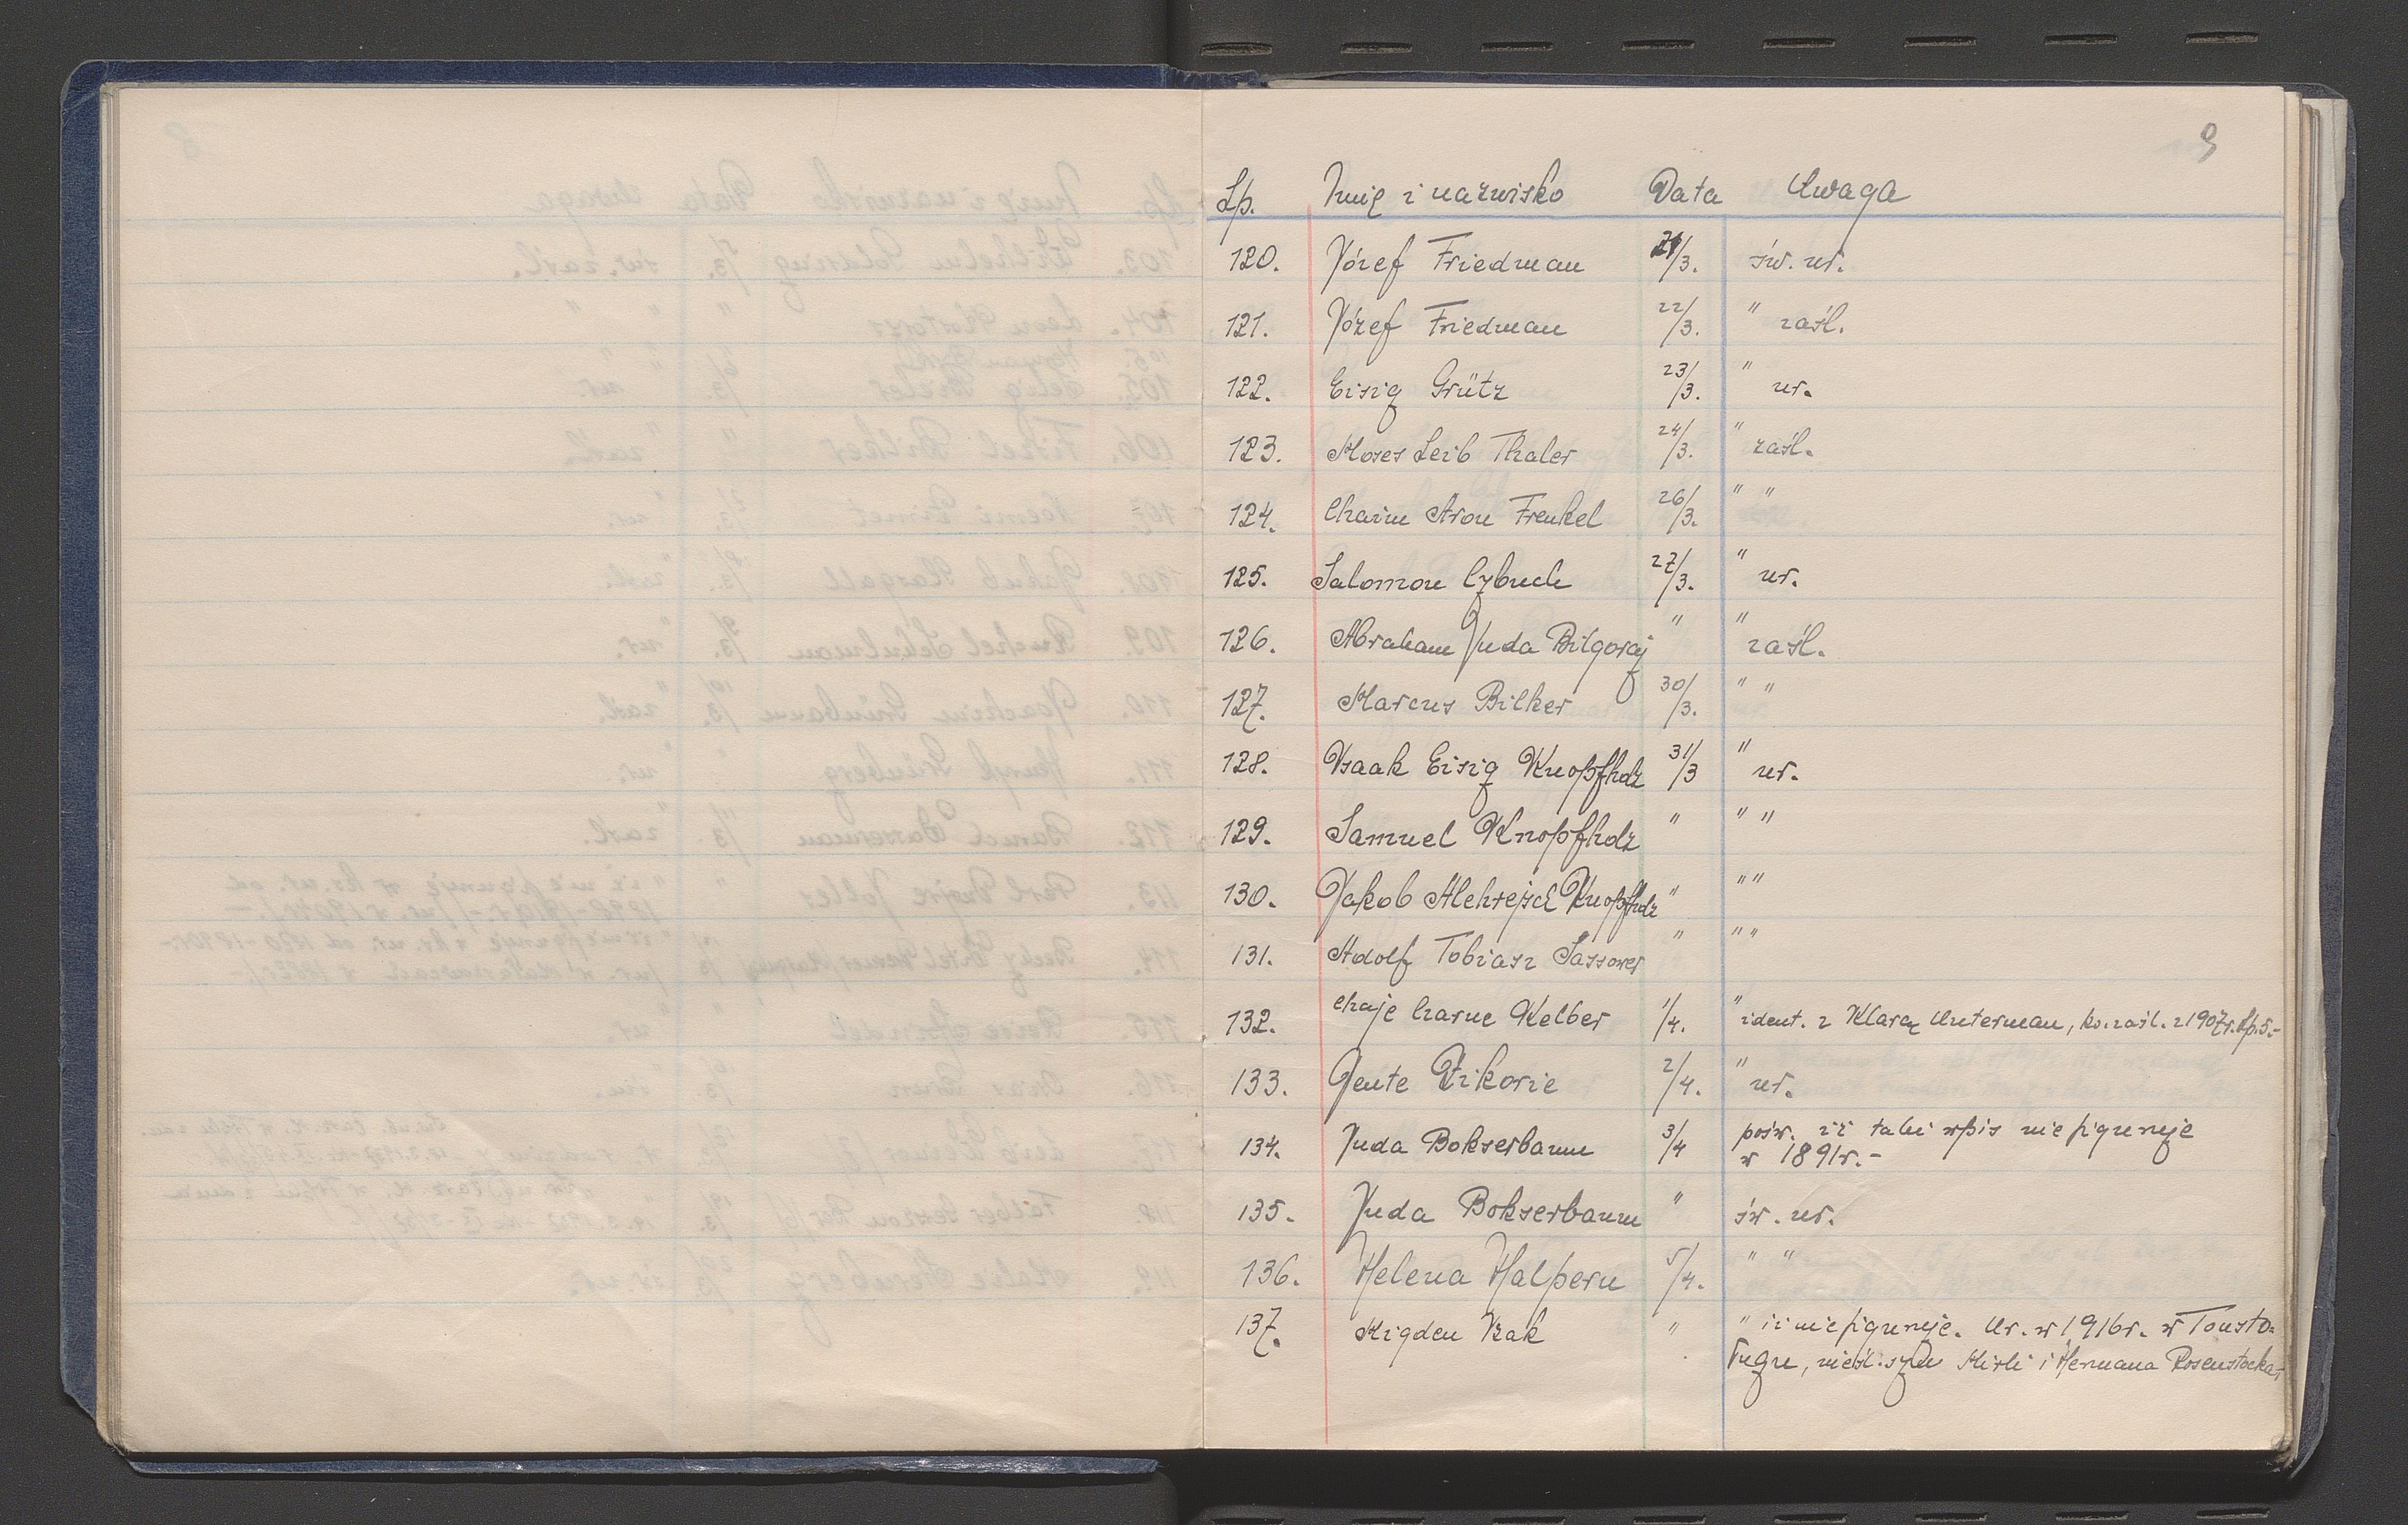 9
Lp. Imię i nazwisko Data Uwaga
120. Józef Friedman 21/3. św. ur.
121. Józef Friedman 22/3. " zaśl.
122. Eisig Grütz 23/3. " ur.
123. Moses Leib Thaler 24/3. " zaśl.
124. Chaim Aron Frenkel 26/3. " "
125. Salomon Cybuch 27/3. " ur.
126. Abraham Juda Bilgoraj " " zaśl.
127. Marcus Bilker 30/3. " "
128. Izaak Eisig Knopfholz 31/3 " ur.
129. Samuel Knopfholz " " "
130. Jakob Knopfholz " " "
131. Adolf Tobiasz Sassower " " "
132. Chaje Czarne Kelber 1/4. " ident. z Klarą Unterman, ks. zaśl. z 1907r. Lp. 5.-
133. Gente Wikorie 2/4. " ur.
134. Juda Bokserbaum 3/4 pośw. iż taki wpis nie figuruje
w 1891r.-
135. Juda Bokserbaum " św. ur.
136. Helena Halpern 5/4. " "
137. Migden Izak " " iż nie figuruje. Ur. w 1916r. w Tousto-
ługu, nieśl. syn Mirli i Hermana Rosenstocka.-